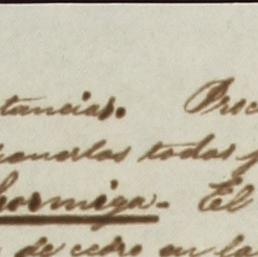 tancias. Proc
ionarlos todos p
hormiga. El
de cedro en la